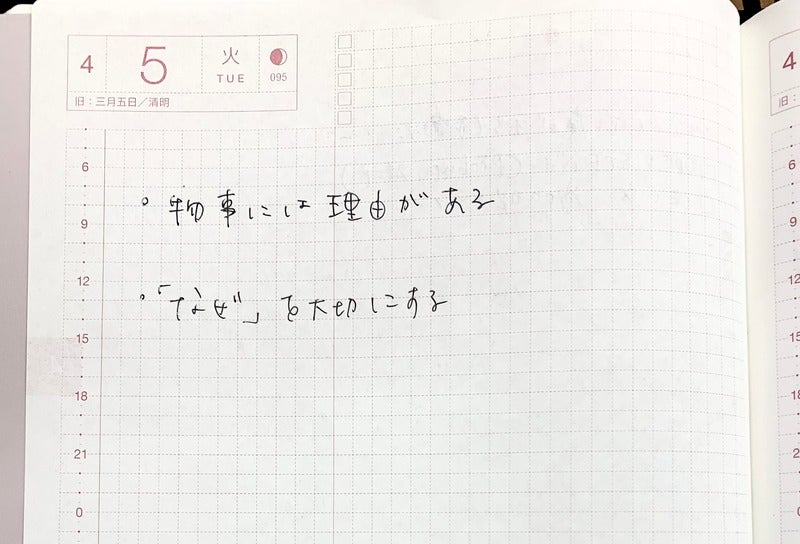 4 5 火 TUE 095
旧：三月五日／清明
6
。物事には理由がある
9
12
。「なぜ」を大切にする
15
18
21
0
4
旧：
6
9
12
15
18
2
0